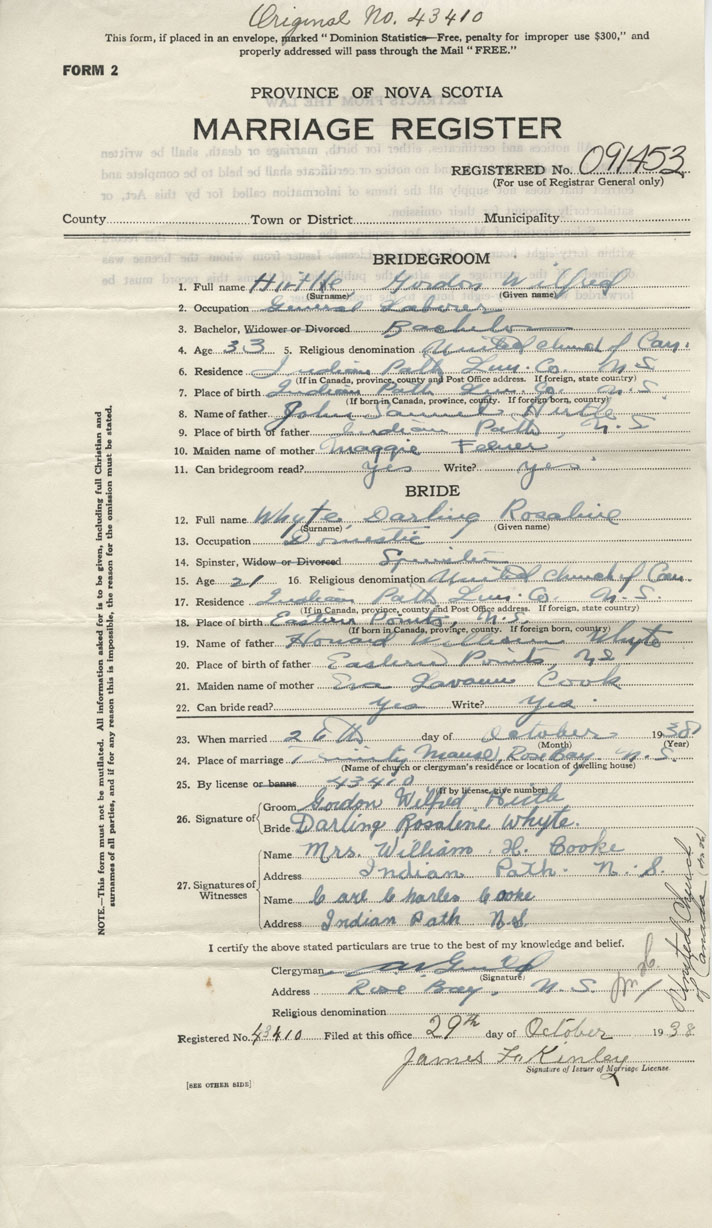 Original No. 43410
This form, if placed in an envelope, marked "Dominion Statistics—Free, penalty for improper use $300," and
properly addressed will pass through the Mail "FREE."
FORM 2
PROVINCE OF NOVA SCOTIA
MARRIAGE REGISTER
REGISTERED No. 091453
(For use of Registrar General only)
County Town or District Municipality
BRIDEGROOM
1. Full name Hirtle Gordon Wilfred
(Surname) (Given name)
2. Occupation General Laborer
3. Bachelor, Widower or Divorced Bachelor
4. Age 33 5. Religious denomination United Church of Can.
6. Residence Indian Path Lun. Co. N.S.
(If in Canada, province, county and Post Office address. If foreign, state country)
7. Place of birth Indian Path Lun. Co. N.S.
(If born in Canada, province, county. If foreign born, country)
8. Name of father John Samuel Hirtle
9. Place of birth of father Indian Path, N.S
10. Maiden name of mother Maggie
11. Can bridegroom read? Yes Write? Yes
BRIDE
12. Full name Whyte, Darling Rosaline
(Surname) (Given name)
13. Occupation Domestic
14. Spinster, Widow or Divorced Spinster
15. Age 21 16. Religious denomination United Church of Can.
17. Residence Indian Path Lun. Co. N.S.
(If in Canada, province, county and Post Office address. If foreign, state country)
18. Place of birth Eastern Points, N.S.
(If born in Canada, province, county. If foreign born, country)
19. Name of father Howard William Whyte
20. Place of birth of father Eastern Points, N.S
21. Maiden name of mother Eva Lavaune Cook
22. Can bride read? Yes Write? Yes
23. When married 26th day of October 1938
(Month) (Year)
24. Place of marriage Trinity Manse, Rose Bay, N.S.
(Name of church or clergyman's residence or location of dwelling house)
25. By license or banns 43410
(If by license, give number)
26. Signature of Groom Gordon Wilfred Hirtle
Bride Darling Rosalene Whyte.
27. Signatures of Witnesses
Name Mrs. William H. Cooke
Address Indian Path. N.S.
Name Carl Charles Cooke
Address Indian Path N.S
I certify the above stated particulars are true to the best of my knowledge and belief.
Clergyman
(Signature)
Address Rose Bay, N.S.
Religious denomination
United Church of Canada
Registered No. 43410 Filed at this office 29th day of October 1938
James F. Kinley
Signature of Issuer of Marriage License
[SEE OTHER SIDE]
NOTE.—This form must not be mutilated. All information asked for is to be given, including full Christian and
surnames of all parties, and if for any reason this is impossible, the reason for the omission must be stated.